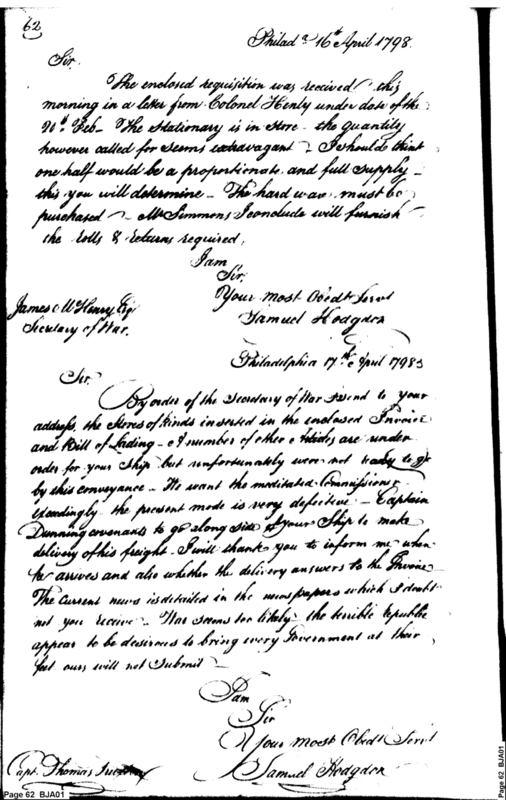 62
Philada 16th April 1798.
Sir,
The enclosed requisition was received this
morning in a letter from Colonel Henly under date of the
Feb– The Stationary is in Store – the quantity
however called for seems extravagant – I should think
one half would be a proportionate and full supply –
this you will determine – The hard ware must be
purchased – Mr Simmons I conclude will furnish
the rolls & returns required,
I am
Sir,
Your most Obedt Servt
Samuel Hodgdon
James McHenry Esqr
Secretary of War.
Philadelphia 17th April 1798
Sir,
By order of the Secretary of War I send to your
address, the Stores of kinds inserted in the enclosed Invoice
and Bill of Lading – A number of other Articles are under
order for your Ship but unfortunately were not ready to go
by this conveyance – We want the meditated Commissioner
exceedingly the present mode is very defective – Captain
Dunning covenants to go along side of your Ship to make
delivery of his freight – I will thank you to inform me when
he arrives and also whether the delivery answers to the Invoice
The current news is detailed in the news papers which I doubt
not you receive – War seems too likely – the terrible republic
appear to be desirous to bring every Government at their
feet ours will not submit –
I am
Sir
Your most Obedt Servt
Samuel Hodgdon
Capt. Thomas
Page 62 BJA01
Page 62 BJA01